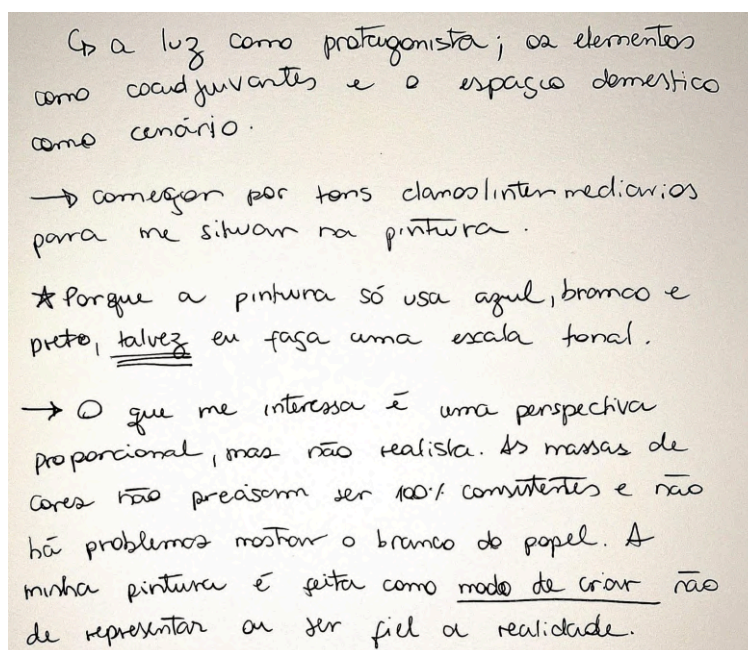 ↳ a luz como protagonista; os elementos
como coadjuvantes e o espaço domestico
como cenário.
→ começar por tons claros/intermediarios
para me situar na pintura.
★ Porque a pintura só usa azul, branco e
preto, talvez eu faça uma escala tonal.
→ O que me interessa é uma perspectiva
proporcional, mas não realista. As massas de
cores não precisam ser 100% consistentes e não
há problemas mostrar o branco do papel. A
minha pintura é feita como modo de criar não
de representar ou ser fiel a realidade.